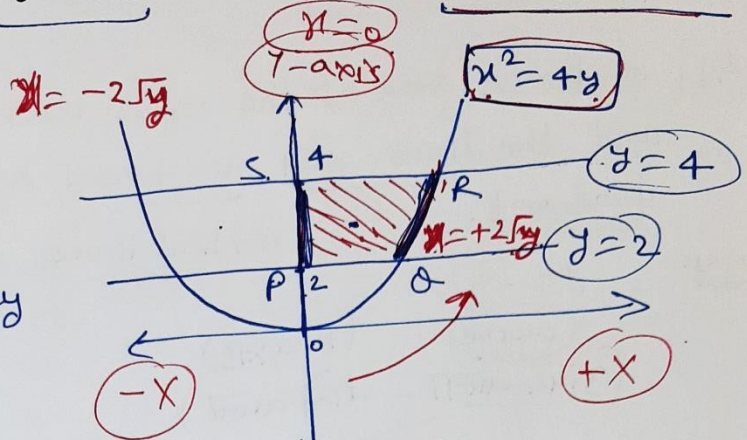 x=0
Y-axis
x² = 4y
x = -2√y
S 4
y = 4
R
x = +2√y
y = 2
P 2 Q
y
0
-X
+X